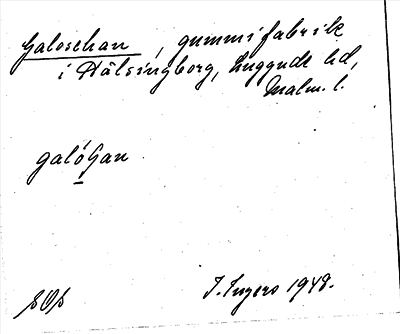 Galoschan, gummifabrik
i Hälsingborg, Luggude hd,
Malm. l.
galóʃan
I. Ingers 1948.